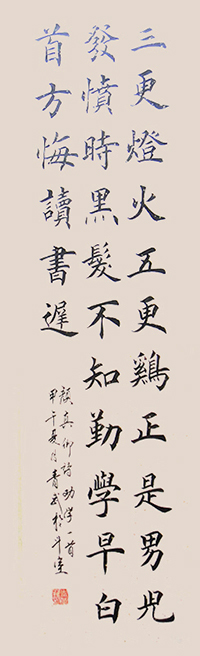 三更燈火五更鷄正是男兒
發憤時黑髮不知勤學早白
首方悔讀書遲
顏真卿詩勸學一首
甲午夏月青武於斗室